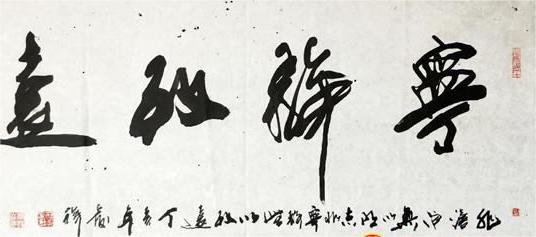 寧靜致遠
非澹泊無以明志非寧靜無以致遠丁亥年